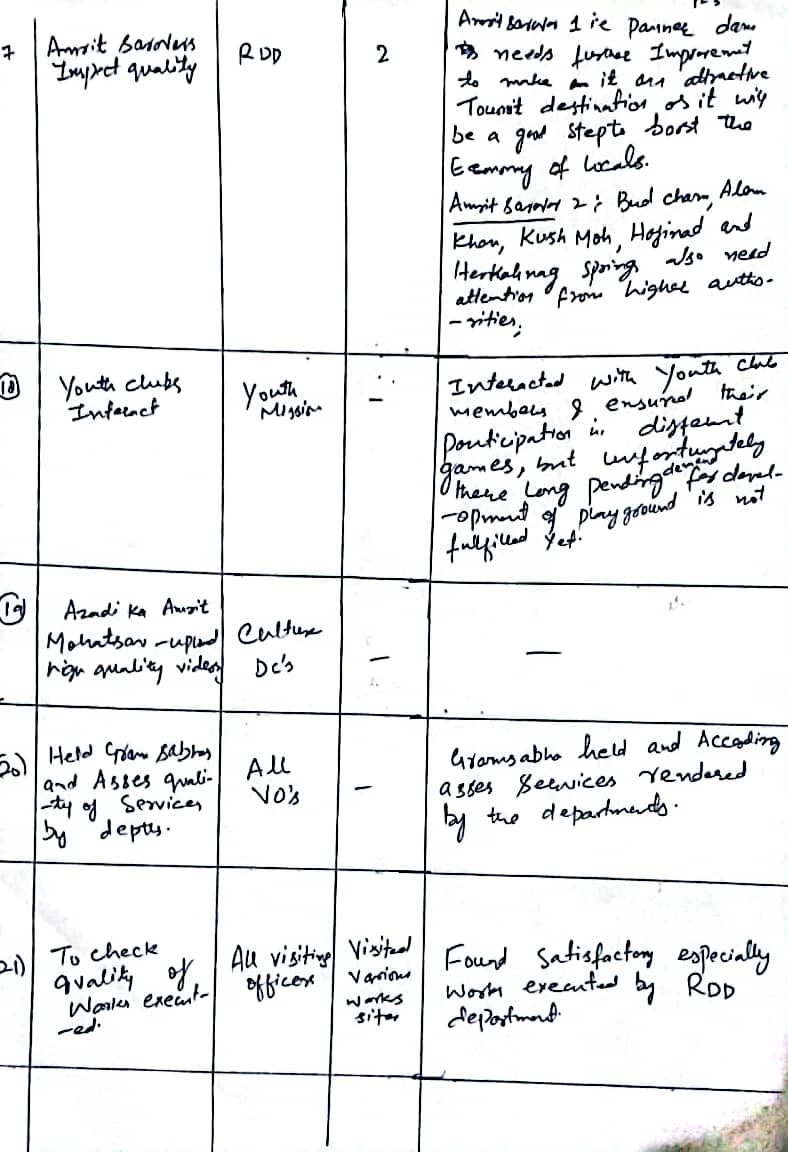 7
Amrit Sarovers
Inspect quality
RDD
2
Amrit Sarover 1 ie Pannee dam
needs further Improvemnt
to make it an attractive
Tourist destination as it will
be a good step to boost the
Economy of locals.
Amrit Sarover 2 : Bud cham, Alam
Khan, Kush Moh, Hajinad and
Herkahnag Spring also need
attention from higher autho-
-rities.
18
Youth clubs
Interact
Youth
Mission
—
Interacted with Youth club
members & ensured their
participation in different
games, but unfortunately
there long pending demand for devel-
-opment of play ground is not
fulfilled yet.
19
Azadi Ka Amrit
Mohatsav - upload
high quality videos
Culture
Dc's
—
—
20)
Held Gram Sabhas
and Asses quali-
-ty of Services
by deptts.
All
VO's
—
Gramsabha held and Accoding
asses Services rendered
by the departments.
21)
To check
quality of
Works execut-
-ed.
All visiting
officers
Visited
various
works
sites
Found Satisfactory especially
Works executed by RDD
department.